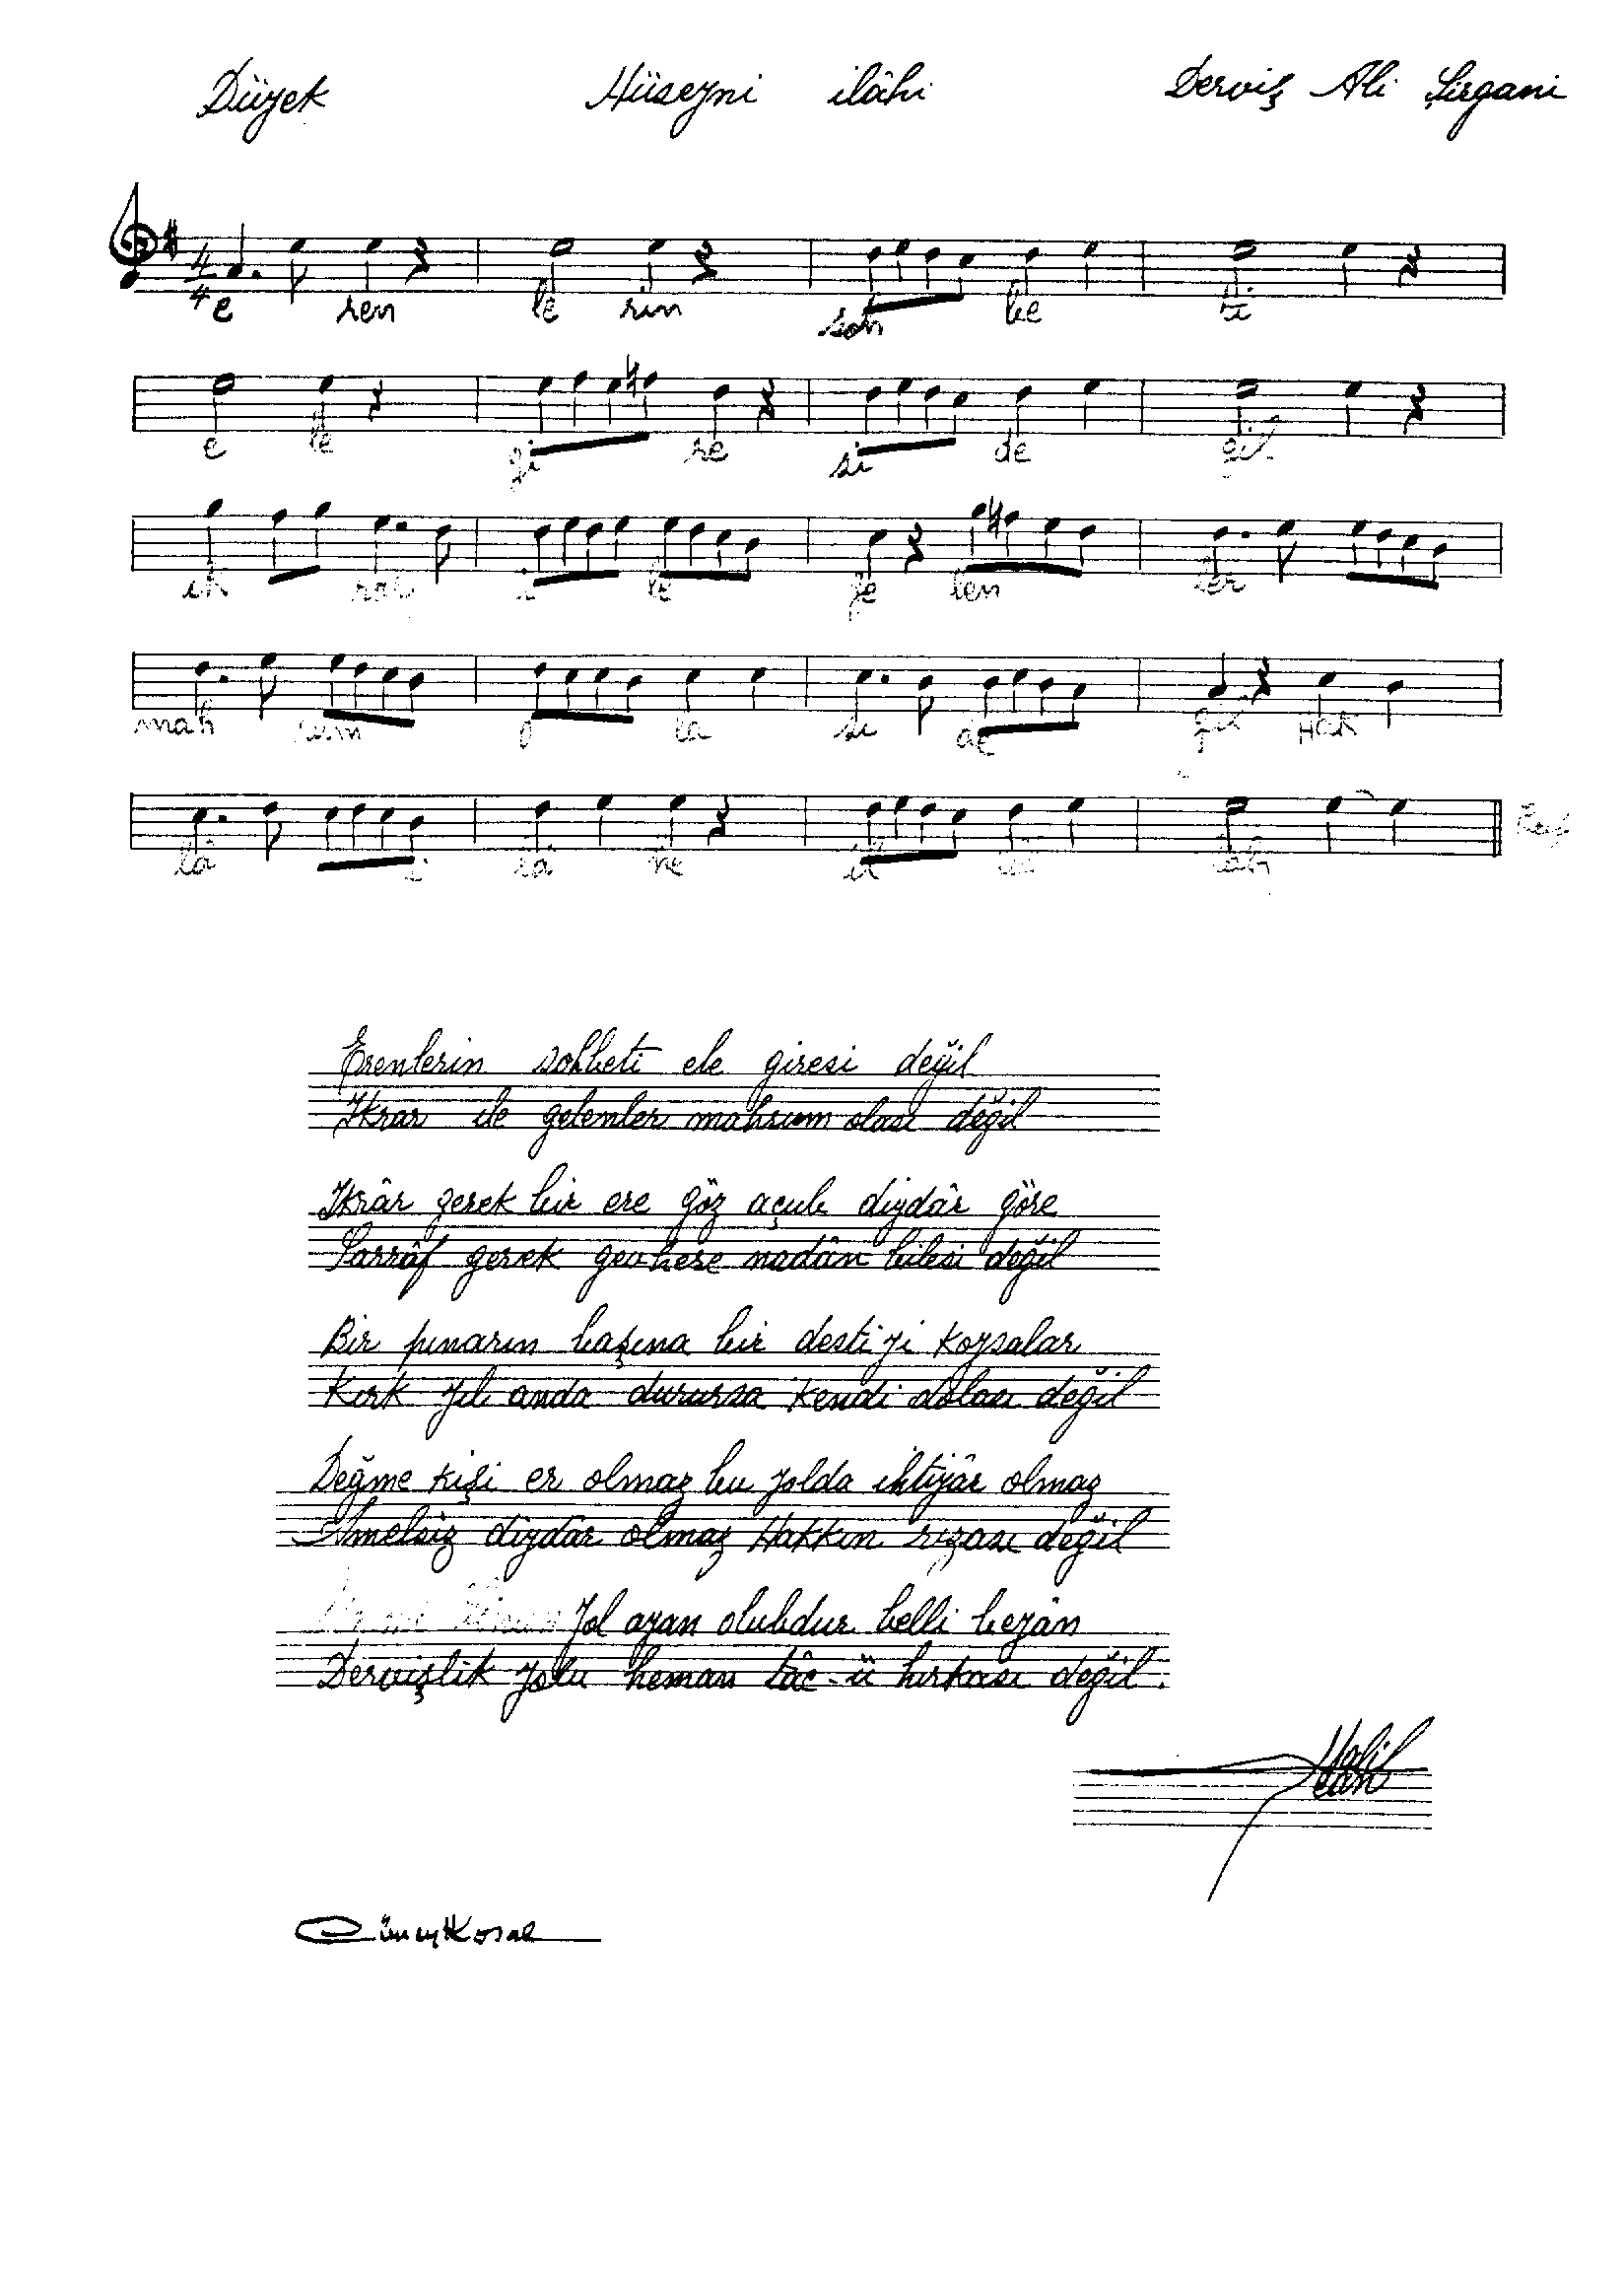 Düyek Hüseyni ilâhi Derviş Ali Şirgani
4/4
e ren le rin soh be ti
e le gi re si de ğil
ik rar i le ge len ler
mah rum o la sı de ğil Hak
lâ i lâ he il lal lah
Erenlerin sohbeti ele giresi değil
Ikrar ile gelenler mahrum olası değil
Ikrâr gerek bir ere göz açub diydâr göre
Sarrâf gerek gevhere nadân bilesi değil
Bir pınarın başına bir destiyi koysalar
Kırk yıl anda durursa kendi dolası değil
Değme kişi er olmaz bu yolda ihtiyâr olmaz
Amelsiz diydâr olmaz Hakkın rızası değil
Yol azan olubdur belli bezân
Dervişlik yolu heman tâc-ü hırkası değil.
Halil
Can
Cüneyt Kosal